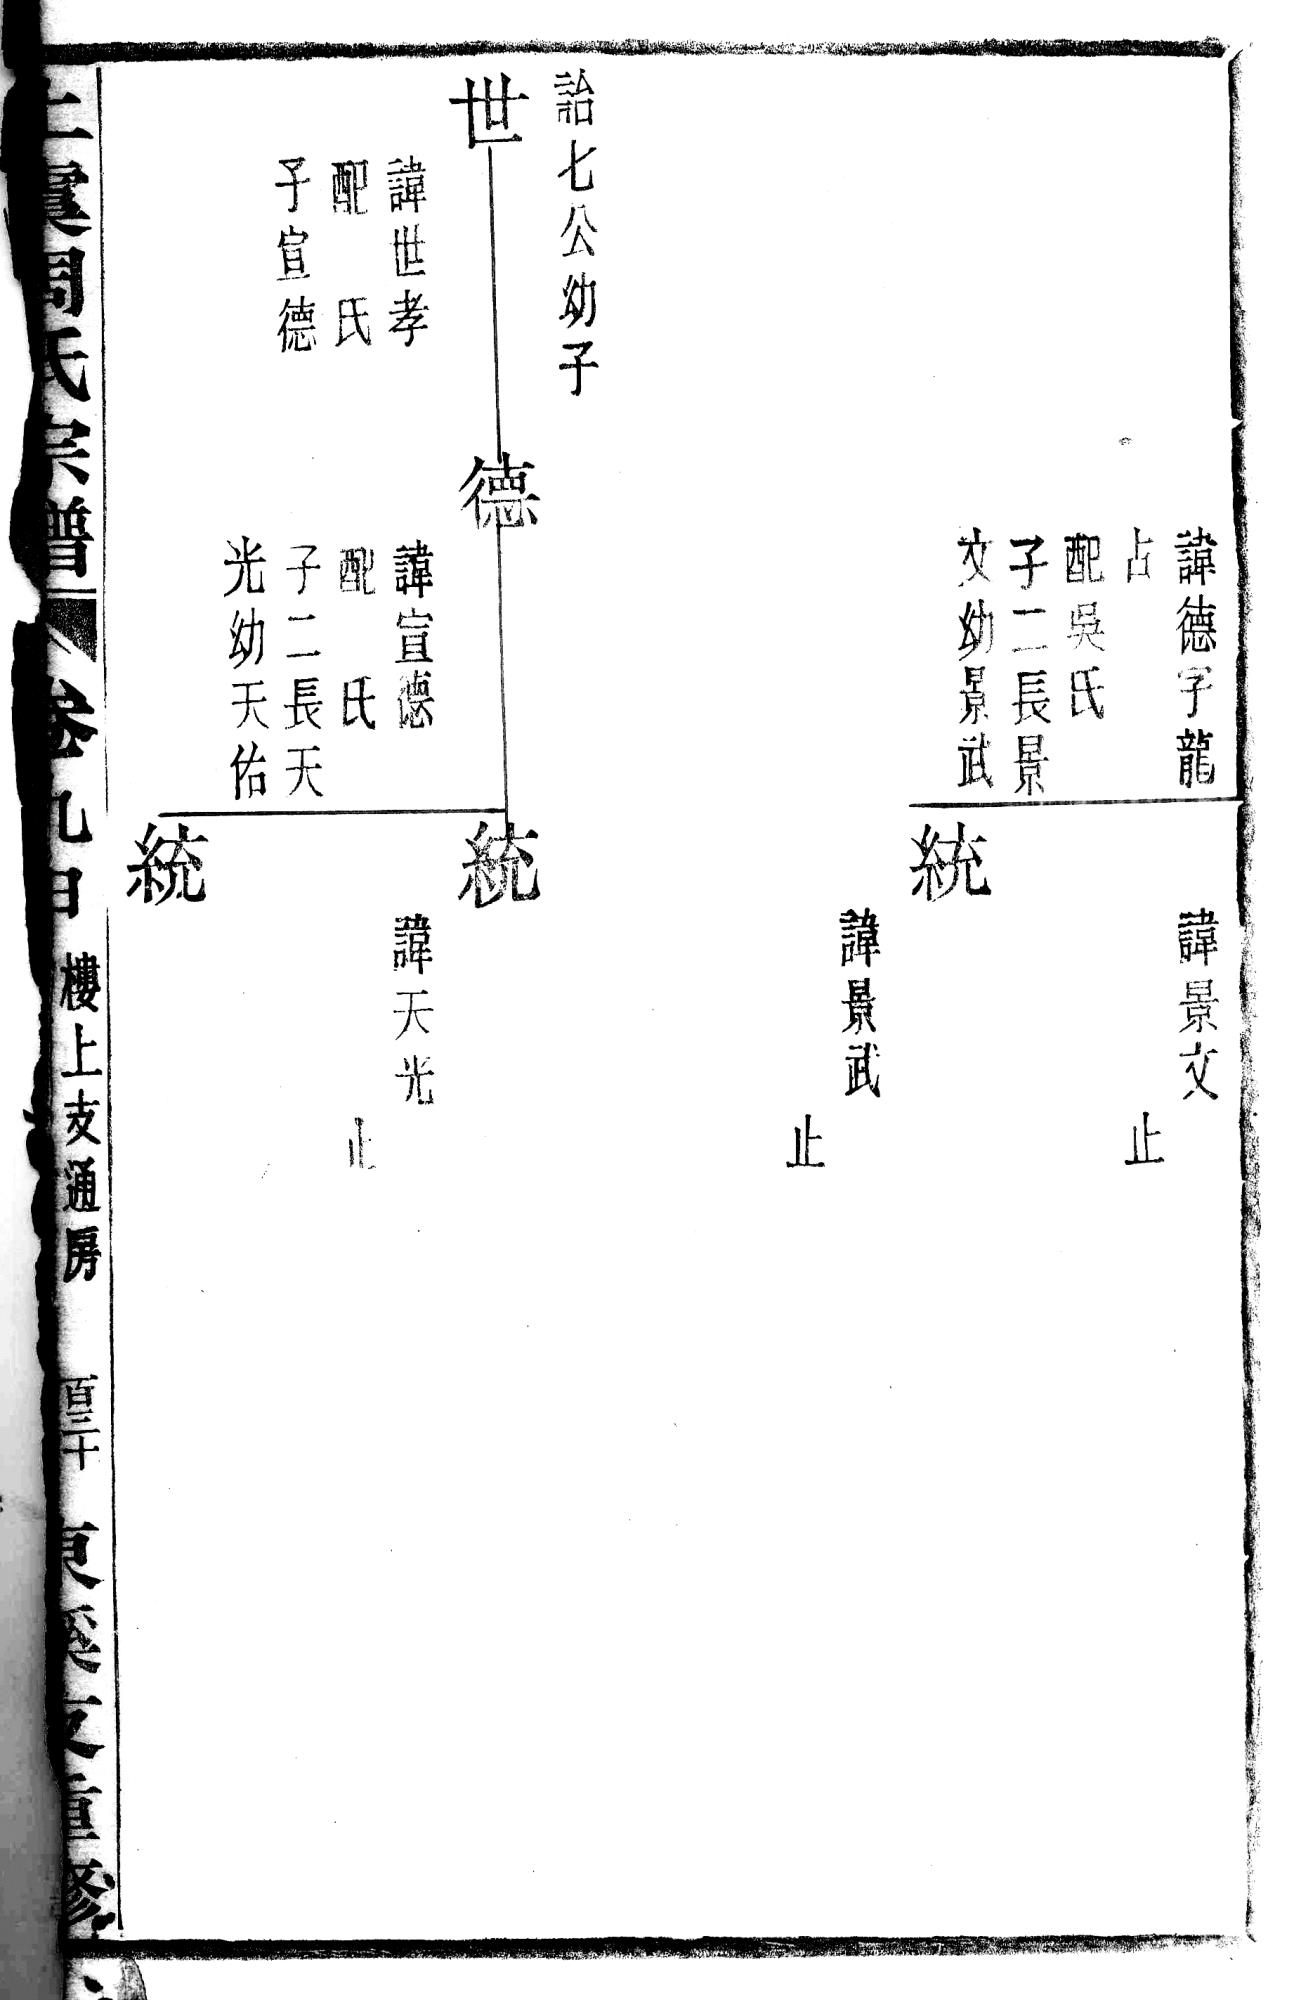 諱德字龍
占
配吳氏
子二長景
文幼景武
統
諱景文
止
諱景武
止
詒七公幼子
世
諱世孝
配　氏
子宣德
德
諱宣德
配　氏
子二長天
光幼天佑
統
諱天光
止
統
上虞周氏宗譜
卷九甲
樓上支通房
百三十
東溪支重修